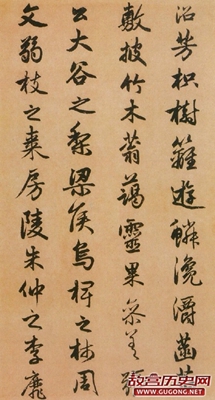 沼芳枳樹籬遊鱗瀺灂菡萏
敷披竹木蓊藹靈果參差張
公大谷之梨梁侯烏椑之柿周
文弱枝之棗房陵朱仲之李靡
故宫历史网
WWW.GUGONG.NET